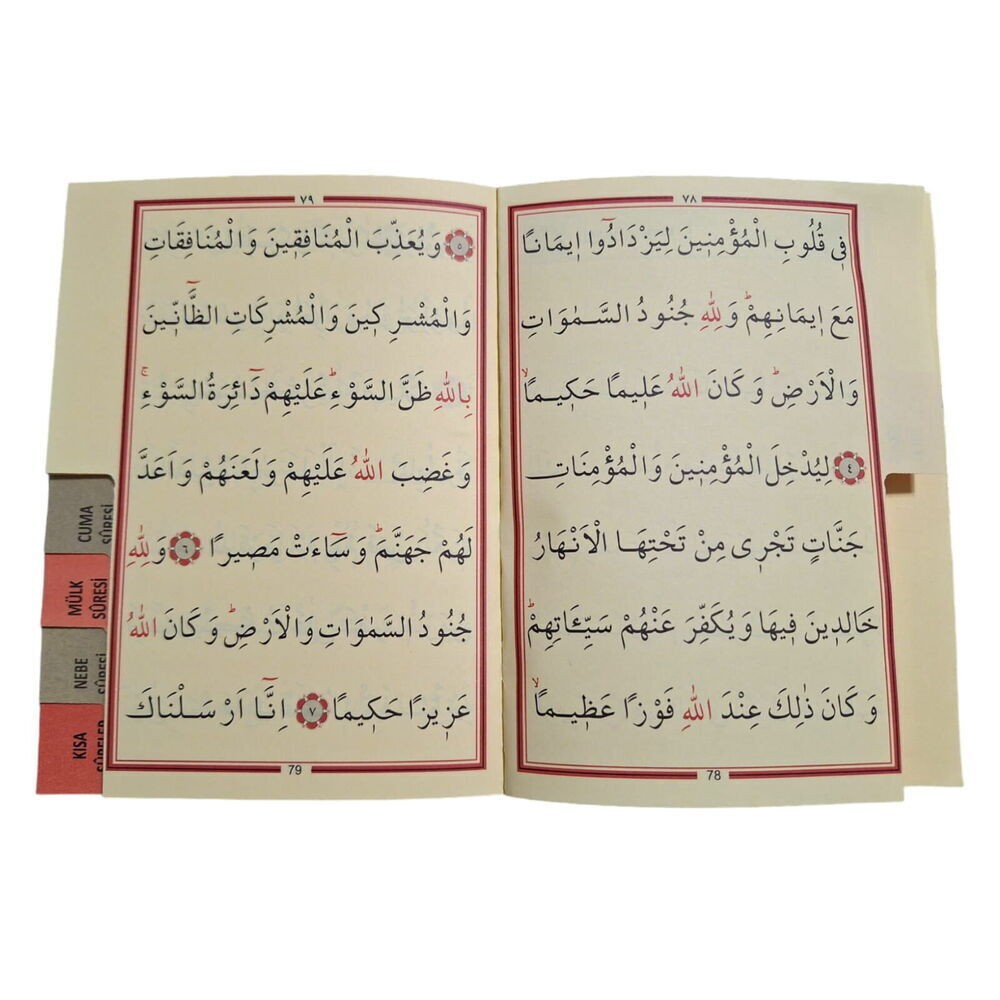 ٧٨
فٖي قُلُوبِ الْمُؤْمِنٖينَ لِيَزْدَادُٓوا اٖيمَانًا
مَعَ اٖيمَانِهِمْۜ وَلِلّٰهِ جُنُودُ السَّمٰوَاتِ
وَالْاَرْضِۜ وَكَانَ اللّٰهُ عَلٖيمًا حَكٖيمًاۙ
﴿٤﴾ لِيُدْخِلَ الْمُؤْمِنٖينَ وَالْمُؤْمِنَاتِ
جَنَّاتٍ تَجْرٖي مِنْ تَحْتِهَا الْاَنْهَارُ
خَالِدٖينَ فٖيهَا وَيُكَفِّرَ عَنْهُمْ سَيِّـَٔاتِهِمْۜ
وَكَانَ ذٰلِكَ عِنْدَ اللّٰهِ فَوْزًا عَظٖيمًاۙ
78
٧٩
﴿٥﴾ وَيُعَذِّبَ الْمُنَافِقٖينَ وَالْمُنَافِقَاتِ
وَالْمُشْرِكٖينَ وَالْمُشْرِكَاتِ الظَّٓانّٖينَ
بِاللّٰهِ ظَنَّ السَّوْءِۜ عَلَيْهِمْ دَٓائِرَةُ السَّوْءِۚ
وَغَضِبَ اللّٰهُ عَلَيْهِمْ وَلَعَنَهُمْ وَاَعَدَّ
لَهُمْ جَهَنَّمَۜ وَسَٓاءَتْ مَصٖيرًا ﴿٦﴾ وَلِلّٰهِ
جُنُودُ السَّمٰوَاتِ وَالْاَرْضِۜ وَكَانَ اللّٰهُ
عَزٖيزًا حَكٖيمًا ﴿٧﴾ اِنَّٓا اَرْسَلْنَاكَ
79
CUMA
SÛRESİ
MÜLK
SÛRESİ
NEBE
SÛRESİ
KISA
SÛRELER